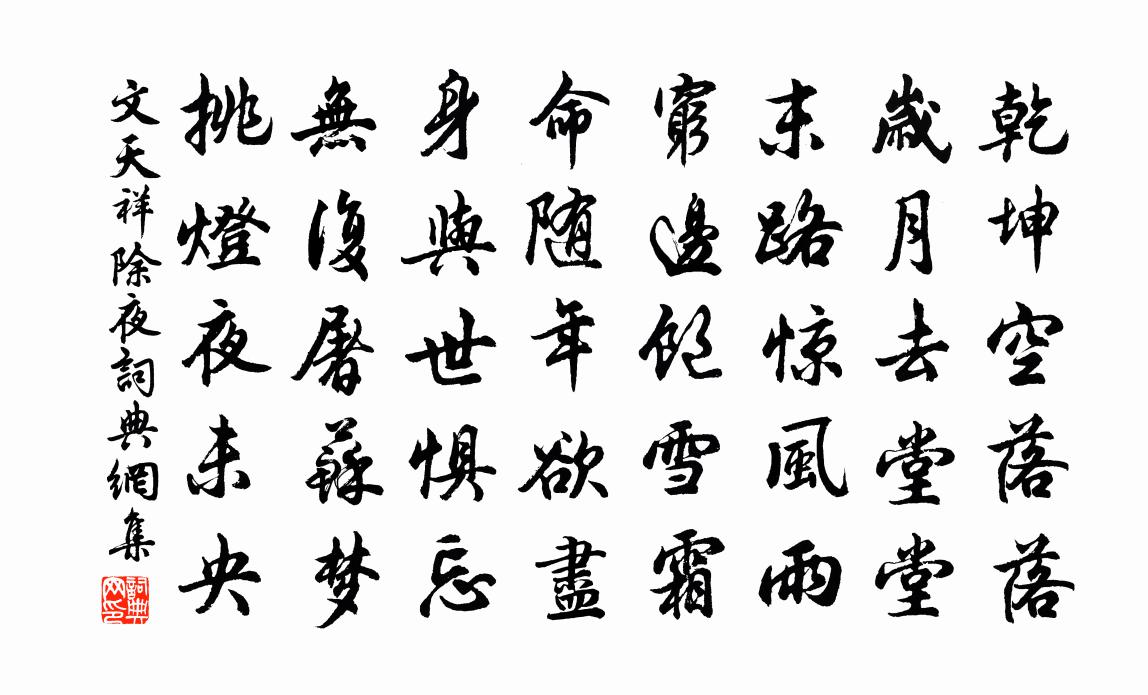 乾坤空落落
歲月去堂堂
末路惊風雨
窮邊飽雪霜
命随年欲盡
身與世俱忘
無復屠蘇梦
挑燈夜未央
文天祥除夜詞典網集
詞典網印